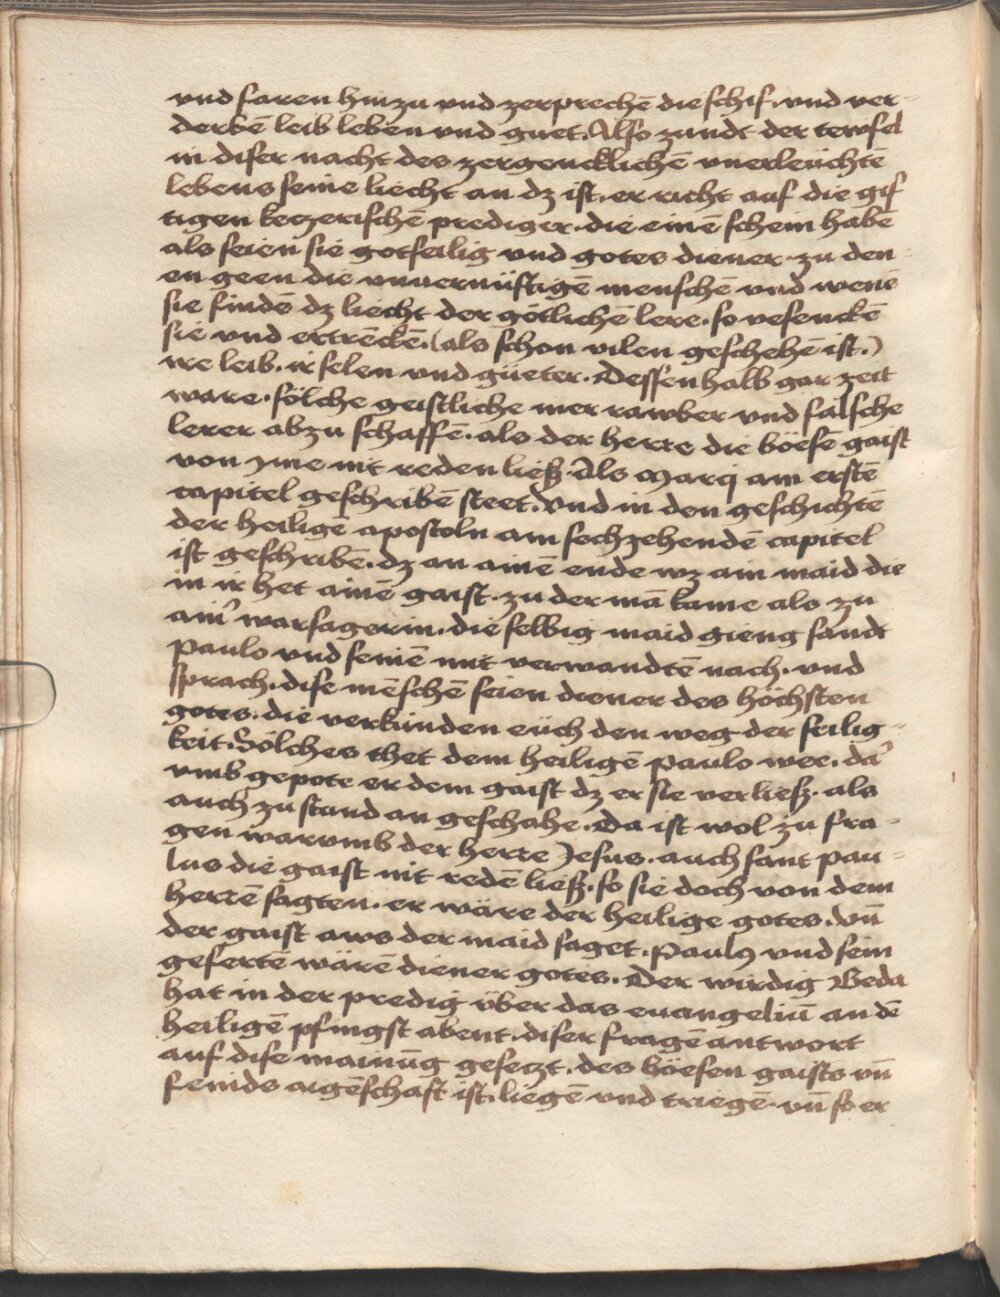 vnd faren hinzu vnd zerprechē die schif. vnd ver-
derbē leib leben vnd guet. Also zundt der tewfel
in diser nacht des zergencklichē vnerleüchtē
lebens seine liecht an dz ist. er richt auf die gif
tigen kezerischē prediger. die einē schein habē
als seien sie gotselig vnd gotes diener. zu den-
en geen die vnuernüftigē menschē vnd wenē
sie findē dz liecht der götlichē lere. so vesenckē
sie vnd ertrēckē. (als schon vilen geschehē ist.)
ire leib. ir selen vnd güeter. Dessenhalb gar zeit
ware. sölche geistliche mer rawber vnd falsche
lerer abzu schaffē. als der herre die böesē gaist
von yme nit reden ließ. Als Marci am erstē
capitel geschribē steet. Vnd in den geschichtē
der heiligē apostoln am sechzehendē capitel
ist geschribē. dz an ainē ende wz ain maid die
in ir het ainē gaist. zu der mā kame als zu
ain' warsagerin. die selbig maid gieng sandt
Paulo vnd seinē mit verwandtē nach. vnd
sprach. dise mēschē seien diener des höchsten
gotes. die verkünden eüch den weg der seilig-
keit. Sölches thet dem heiligē Paulo wee. da'
vmb gepote er dem gaist dz er sie verließ. als
auch zu stand an geschahe. Da ist wol zu fra-
gen warumb der herre Jesus. auch sant Pau-
lus die gaist nit redē ließ. so sie doch von dem
herrē sagten. er wäre der heilige gotes. vn̄
der gaist aws der maid saget. Paulꝰ vnd sein
gefertē wärē diener gotes. Der wirdig Beda
hat in der predig über das euangeliū an dē
heiligē pfingst abent. diser fragē antwort
auf dise mainūg gesezt. des böesen gaists vn̄
feinds aigēschaft ist. liegē vnd triegē. vn̄ so er